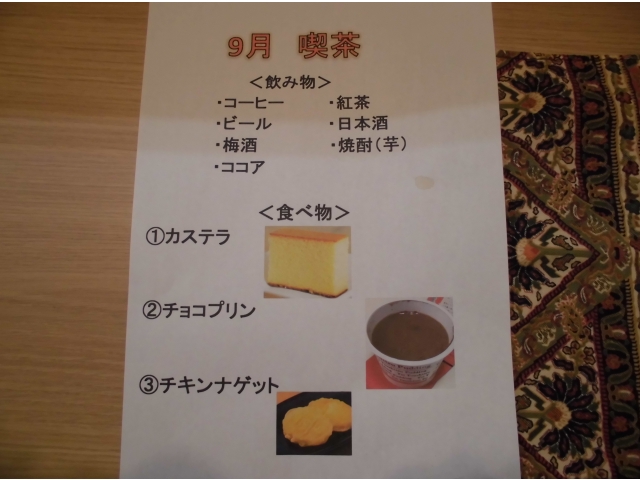 9月 喫茶
＜飲み物＞
・コーヒー ・紅茶
・ビール ・日本酒
・梅酒 ・焼酎（芋）
・ココア
＜食べ物＞
①カステラ
②チョコプリン
③チキンナゲット